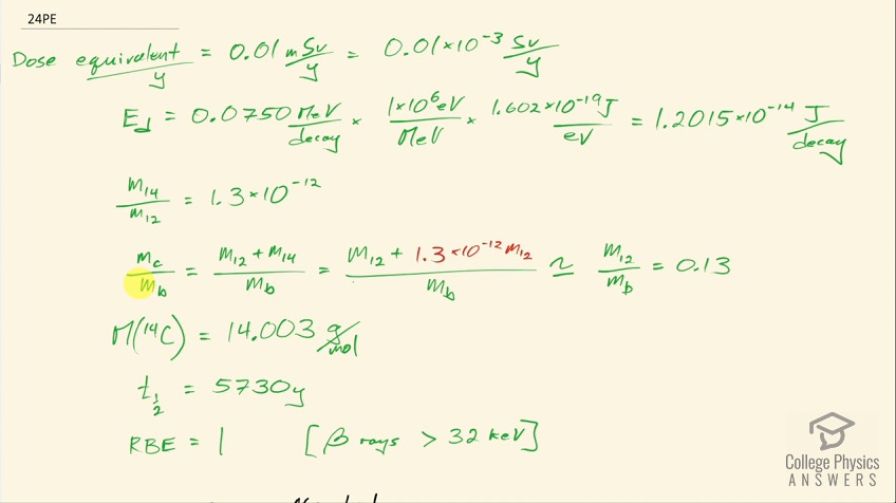 24PE
Dose equivalent/y = 0.01 mSv/y = 0.01×10⁻³ Sv/y
E_d = 0.0750 MeV/decay × 1×10⁶eV/MeV × 1.602×10⁻¹⁹J/eV = 1.2015×10⁻¹⁴ J/decay
m₁₄/m₁₂ = 1.3×10⁻¹²
m_c/m_b = m₁₂ + m₁₄/m_b = m₁₂ + 1.3×10⁻¹² m₁₂/m_b ≃ m₁₂/m_b = 0.13
M(¹⁴C) = 14.003 g/mol
t_½ = 5730y
RBE = 1 [β rays > 32 keV]
College Physics
ANSWERS